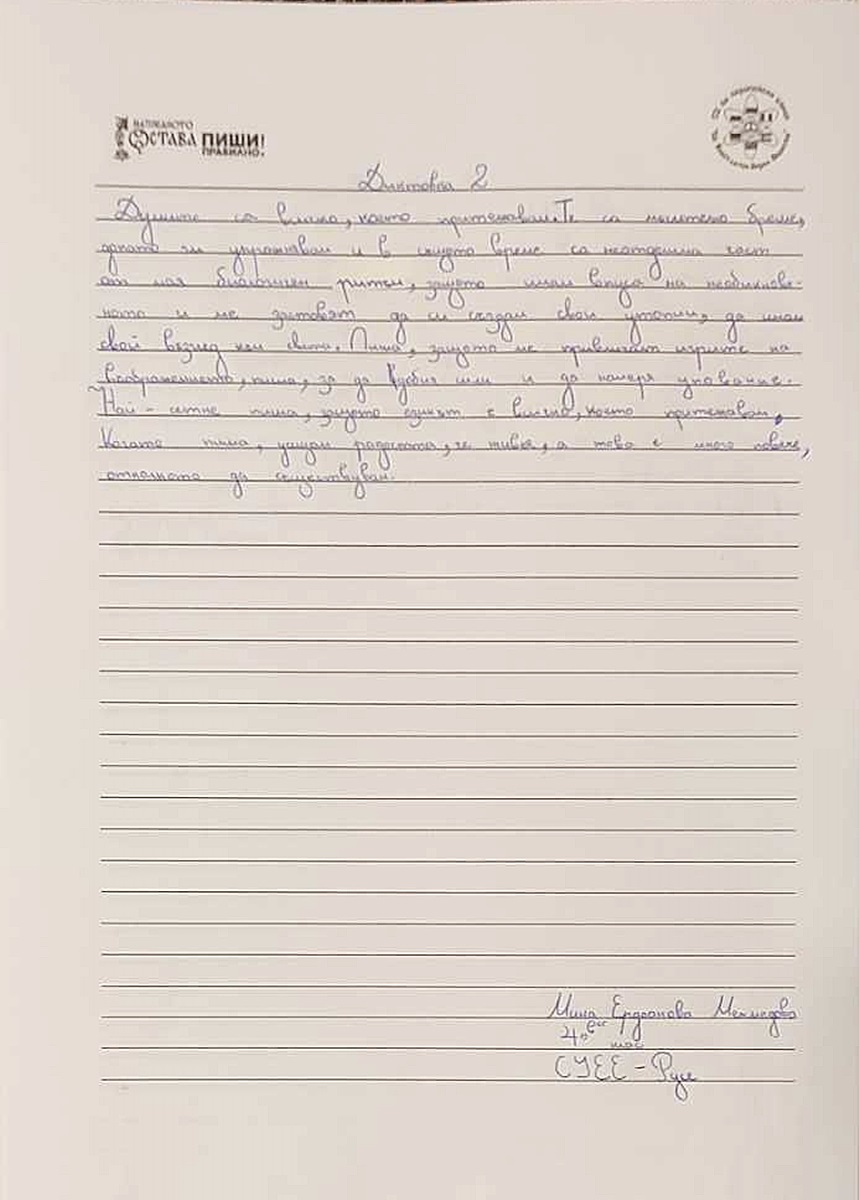 НАПИСАНОТО
ОСТАВА ПИШИ!
ПРАВИЛНО.
Диктовка 2
Думите са всичко, което притежавам. Те са мислено бреме,
когато ги упражнявам и в същото време са неотделима част
от моя биологичен ритъм, защото имам вкуса на необикнове-
ното и ме заставят да си създам свои утопии, да имам
свой възглед към света. Пиша, защото ме привличат игрите на
въображението, пиша, за да добия сили и да намеря упование.
Най-сетне пиша, защото езикът е всичко, което притежавам.
Когато пиша, усещам радостта, че живея, а това е много повече,
отколкото да съществувам.
Мина Ердоанова Мехмедова
СУЕЕ - Русе